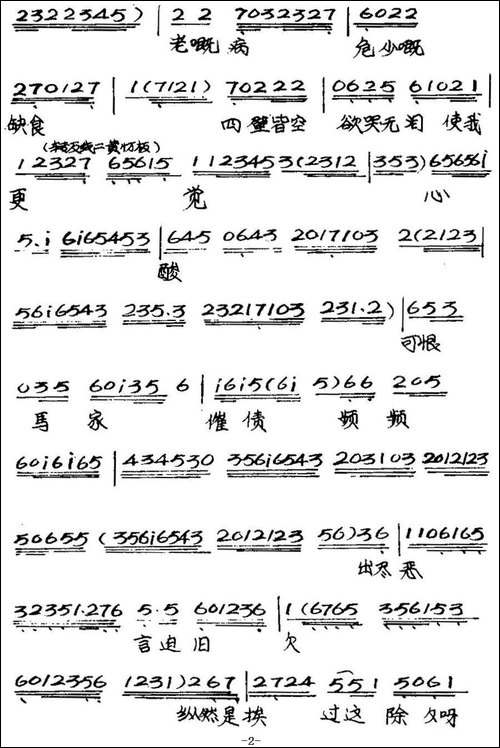 2322345) | 2 2 7032327 | 6022
老嘅 病 危少嘅
270127 | 1(7121) 70222 | 0625 61021
缺食 四壁皆空 欲哭无泪 使我
(二黄慢板)
12327 65615 1123453(2312 | 353)65656i
更 觉 心
5.i 6i65453 | 645 0643 2017103 2(2123 |
酸
56i6543 235.3 23217103 231.2) | 653
可恨
035 60i35 6 | i6i5(6i 5)66 205
马 家 催 债 频 频
60i6i65 | 434530 356i6543 203103 2012123
50655 (356i6543 2012123 56)36 | 1106165
出尽恶
32351.276 5.5 601236 | 1(6765 356153
言迫旧 欠
6012356 1231)267 | 2724 551 5061
纵然是挨 过这 除夕呀
-2-